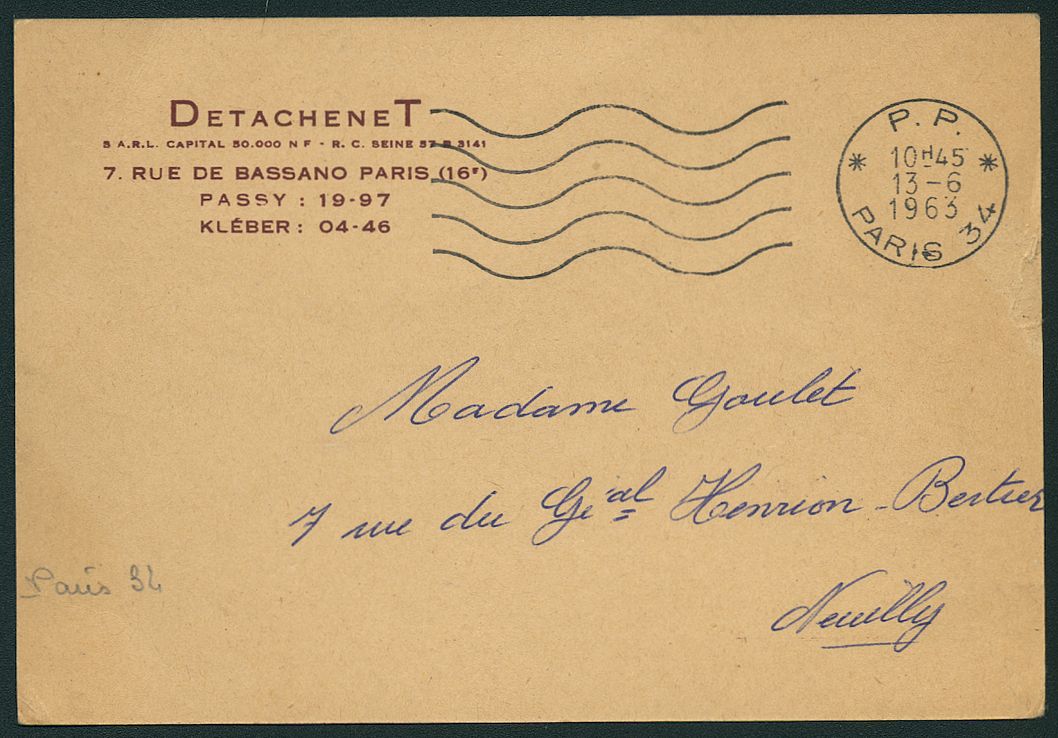 DETACHENET
S A.R.L. CAPITAL 50.000 N F - R. C. SEINE 57 B 3141
7. RUE DE BASSANO PARIS (16e)
PASSY : 19-97
KLÉBER : 04-46
P. P.
10H45
13-6
1963
PARIS 34
Madame Goulet
7 rue du Géal Henrion-Bertier
Neuilly
Paris 34